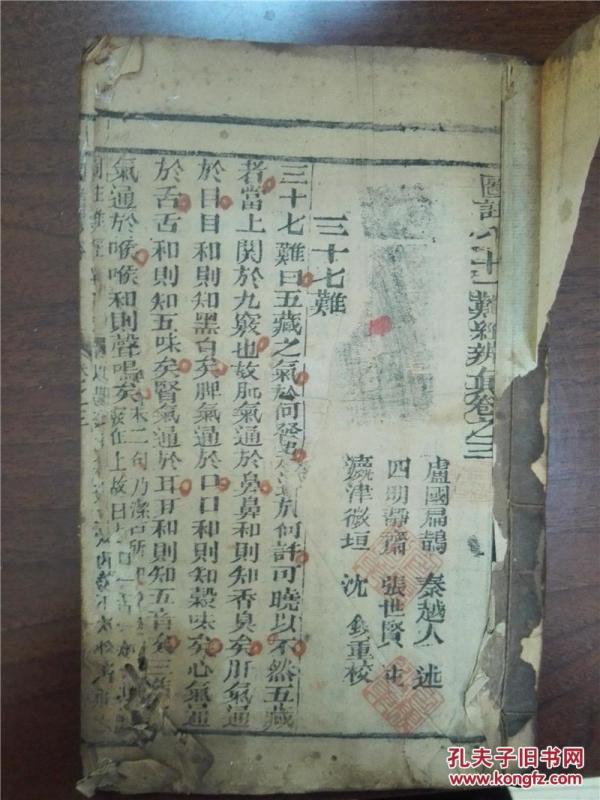 圖註八十一難經辨真卷之三
盧國扁鵲 秦越人 述
四明靜齋 張世賢 註
瀛津微垣 沈 鏡重校
三十七難
三十七難曰五藏之氣於何發起通於何許可曉以不然五藏
者當上関於九竅也故肺氣通於鼻鼻和則知香臭矣肝氣通
於目目和則知黑白矣脾氣通於口口和則知穀味矣心氣通
於舌舌和則知五味矣腎氣通於耳耳和則知五音矣三焦
氣通於喉喉和則聲鳴矣 末二句乃潔古所
上故曰
孔夫子旧书网
www.kongfz.com